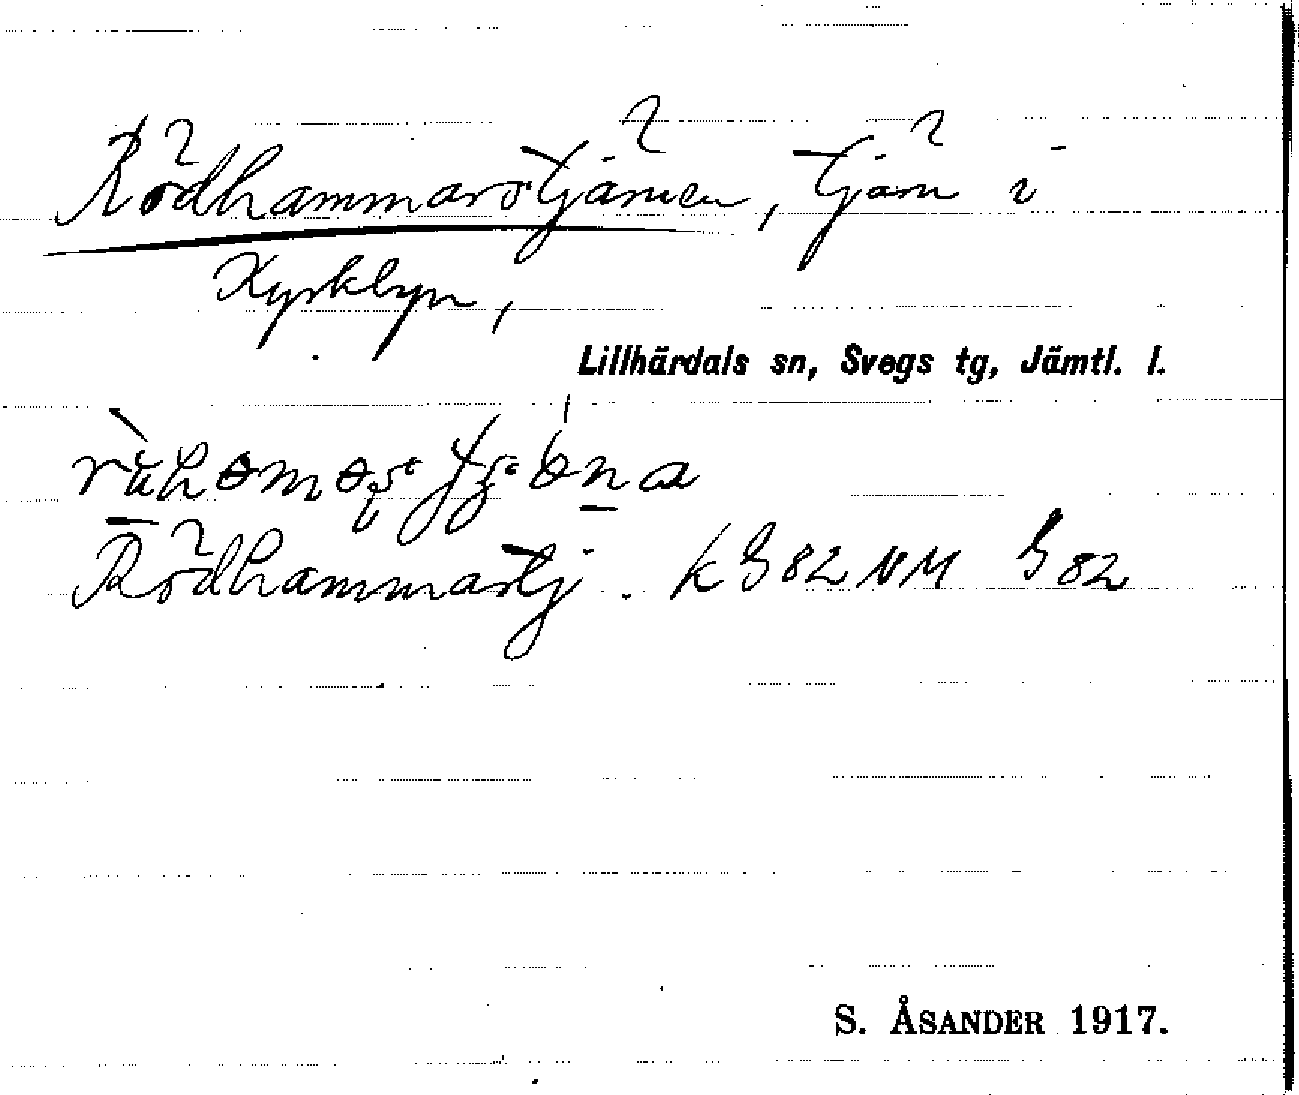 Rödhammarstjärnen, tjärn i
Kyrkbyn,
Lillhärdals sn, Svegs tg, Jämtl. l.
Rödhammartj. k G 82 NM G 82
S. ÅSANDER 1917.